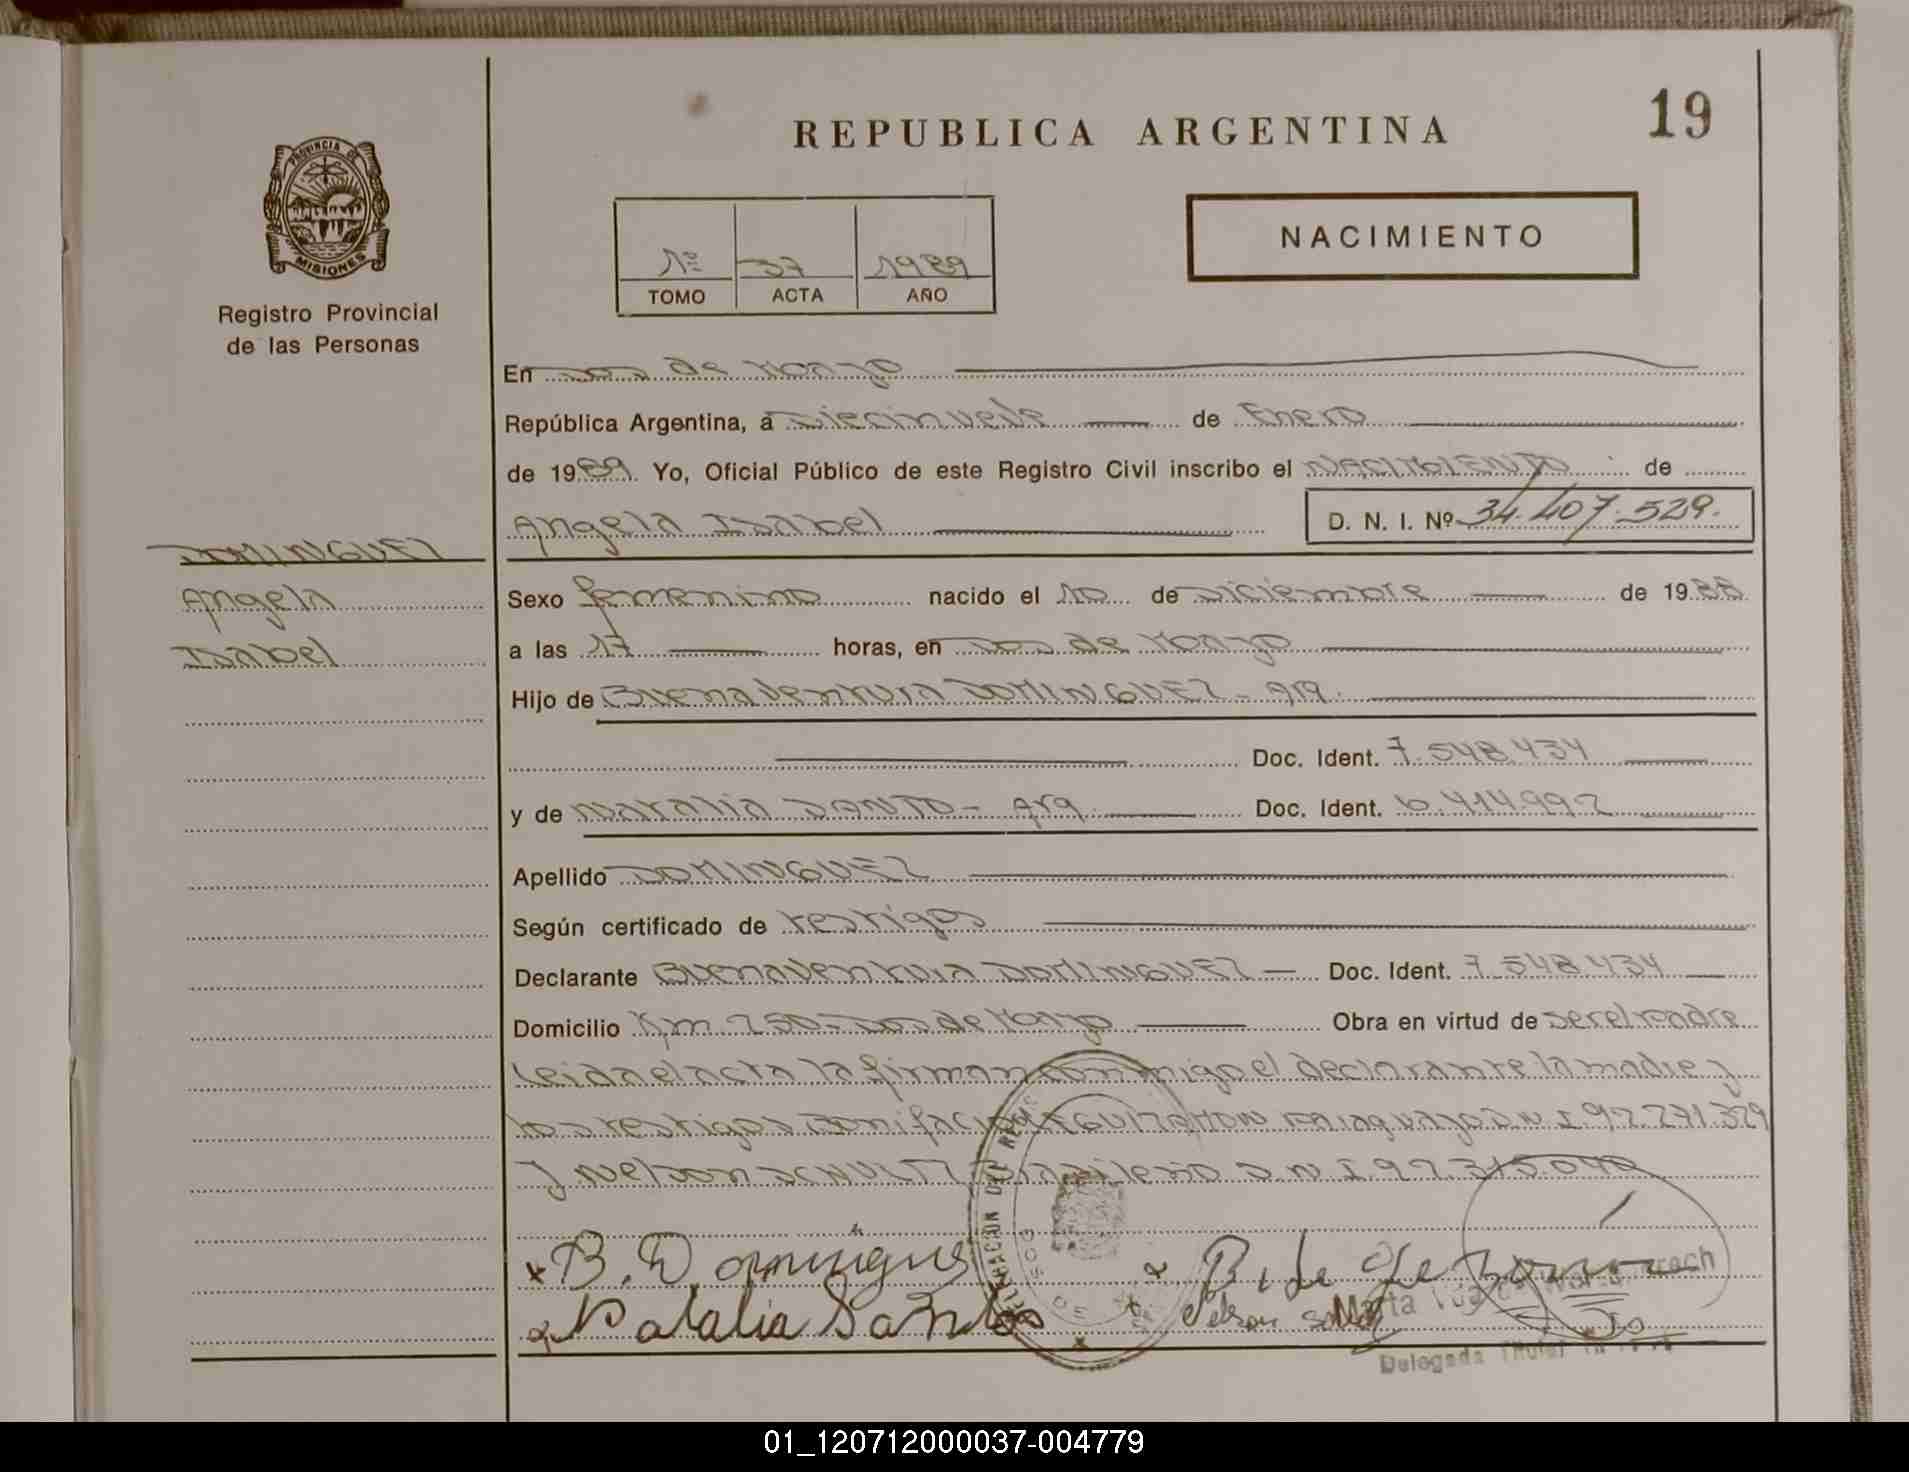 REPUBLICA ARGENTINA
19
PROVINCIA DE
MISIONES
Registro Provincial
de las Personas
NACIMIENTO
1º 37 1989
TOMO ACTA AÑO
En Dos de Mayo
República Argentina, a Diecinueve de Enero
de 1989. Yo, Oficial Público de este Registro Civil inscribo el NACIMIENTO de
Angela Isabel
D. N. I. Nº 34.407.529.
DOMINGUEZ
Angela
Isabel
Sexo femenino nacido el 10 de Diciembre de 1988
a las 17 horas, en Dos de Mayo
Hijo de Buenaventura DOMINGUEZ - Arg.
Doc. Ident. 7.548.434
y de Natalia SANTO - Arg. Doc. Ident. 6.414.992
Apellido DOMINGUEZ
Según certificado de testigos
Declarante Buenaventura DOMINGUEZ Doc. Ident. 7.548.434
Domicilio Km. 250 - Dos de Mayo Obra en virtud de ser el padre
Leida el acta la firman conmigo el declarante la madre y
los testigos Bonifacio D.N.I. 92.271.329
y Nelson Brasileño D.N.I. 92.315.040
B. Dominguez
Natalia Santos
Nelson
Marta
Delegada Titular
01_120712000037-004779